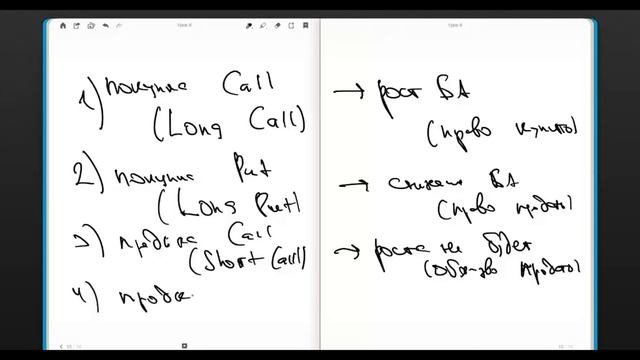 Урок 4
Урок 4
1) покупка Call
(Long Call)
2) покупка Put
(Long Put)
3) продажа Call
(Short Call)
4) прода
→ рост БА
(право купить)
→ снижение БА
(право продать)
→ роста не будет
(обяз-во продать)